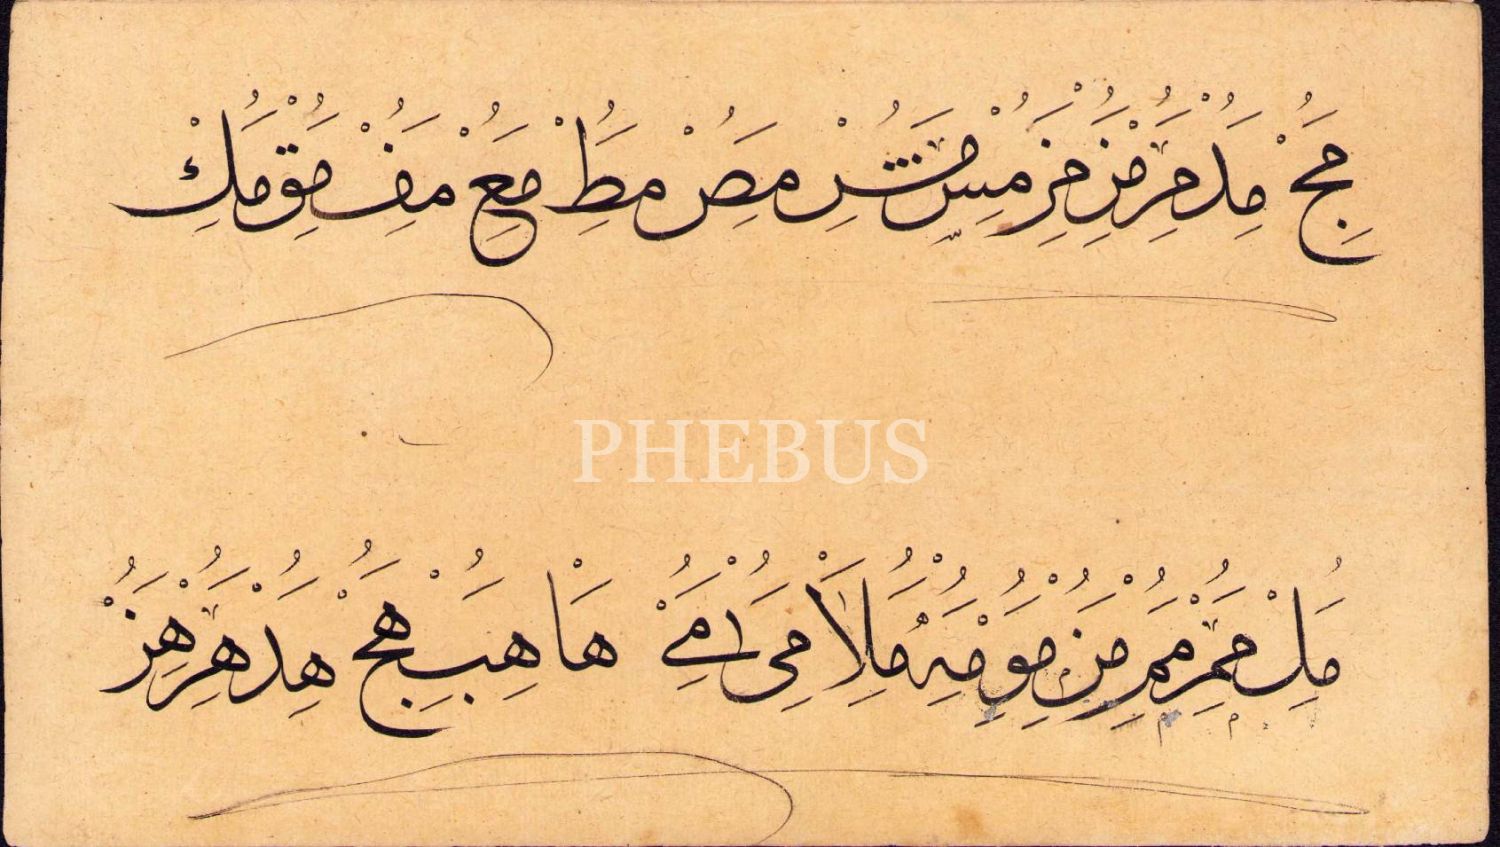 مج مد مر مز مر مز مس مش مص مط مع مف مق مك
PHEBUS
مل مم مم من مو مه ملا مى مے ها هب هج هد هر هز